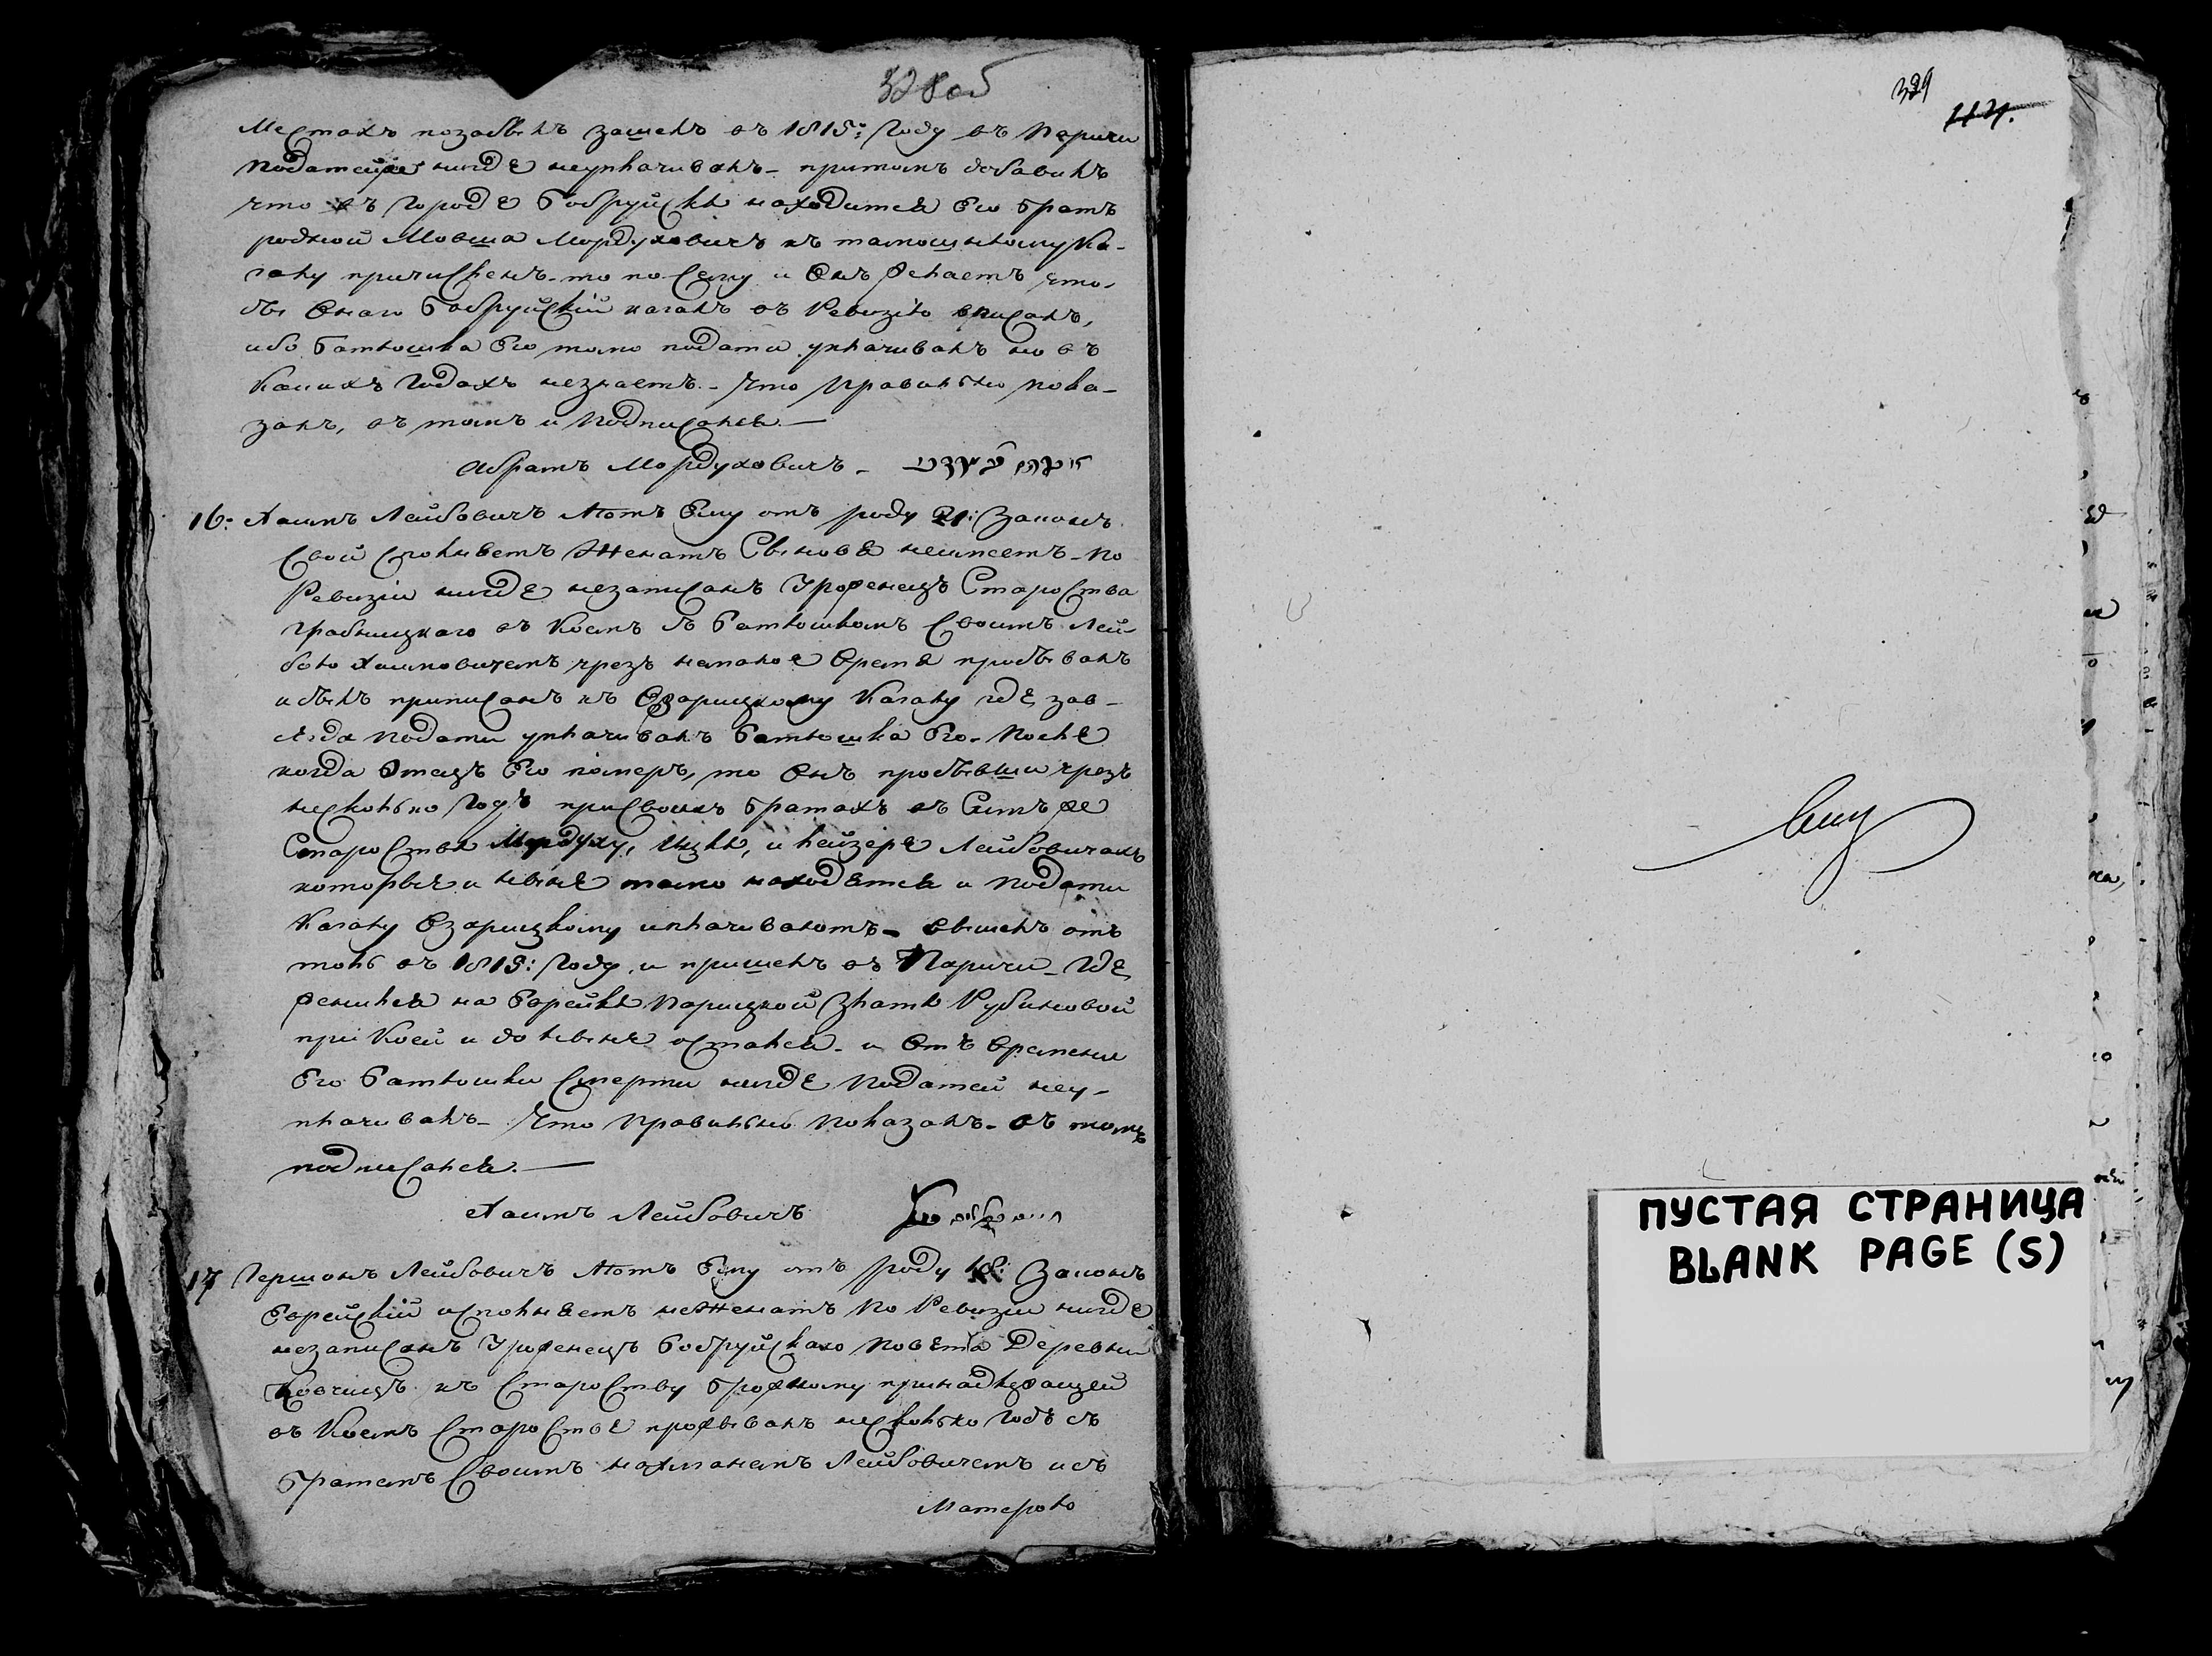 328об
Местахъ позабылъ зашелъ въ 1815: году въ Паричи
податей же нигде неуплачивалъ – притомъ добавилъ
что въ городе Бобруйскѣ находится Его братъ
родной Мовша Мордуховичъ къ тамошньому Ка-
галу причисленъ – то по сему и Онъ желаетъ что-
бы Оного Бобруйскій кагалъ въ Ревизію вписалъ,
ибо Батюшка Его тамо подати уплачивалъ но въ
Какихъ Годахъ незнаетъ. – Что Правильно пока-
залъ, въ томъ и Подписался. —
Абрамъ Мордуховичъ –
16: Хаимъ Лейбовичъ лѣтъ Ему отъ роду 21: Законъ
Свой исполняетъ Женатъ Сыновя неимеетъ – по
Ревизіи нигде незаписанъ Уроженецъ Староства
въ Коемъ съ Батюшкомъ Своимъ Лей-
бою Хаимовичемъ чрезъ немалое Время проживалъ
и былъ приписанъ къ Озарицкому Кагалу где зав-
сегда Подати уплачивалъ Батюшка Его – После
когда Отецъ Его померъ, то Онъ пробывши чрезъ
несколько Годъ присвоихъ братахъ въ Семъ же
Староства Мордуху, Ицкѣ, и Лейзере Лейбовичахъ
которые и ныне тамо находятся и подати
Кагалу Озарицкому уплачиваютъ – вышелъ отъ
толь въ 1815: Году, и пришелъ въ Паричи – где
женился на Еврейкѣ Парицкой Златѣ Рубиновой
при Коей и до ныне остался – и Отъ Времени
Его Батюшки Смерти нигде Податей неу-
плачивалъ – Что Правильно Показалъ – въ томъ
подписался. —
Хаимъ Лейбовичъ
17 Гершонъ Лейбовичъ лѣтъ Ему отъ роду 18: Законъ
Еврейскій исполняетъ неЖенатъ По Ревизіи нигде
незаписанъ Уроженецъ Бобруйскаго Повета Деревни
Ковчицъ къ Староству принадлежащей
въ Коемъ Старостве проживалъ несколько Годъ съ
братемъ Своимъ нахманемъ Лейбовичемъ и съ
Матерью
329
ПУСТАЯ СТРАНИЦА
BLANK PAGE (S)